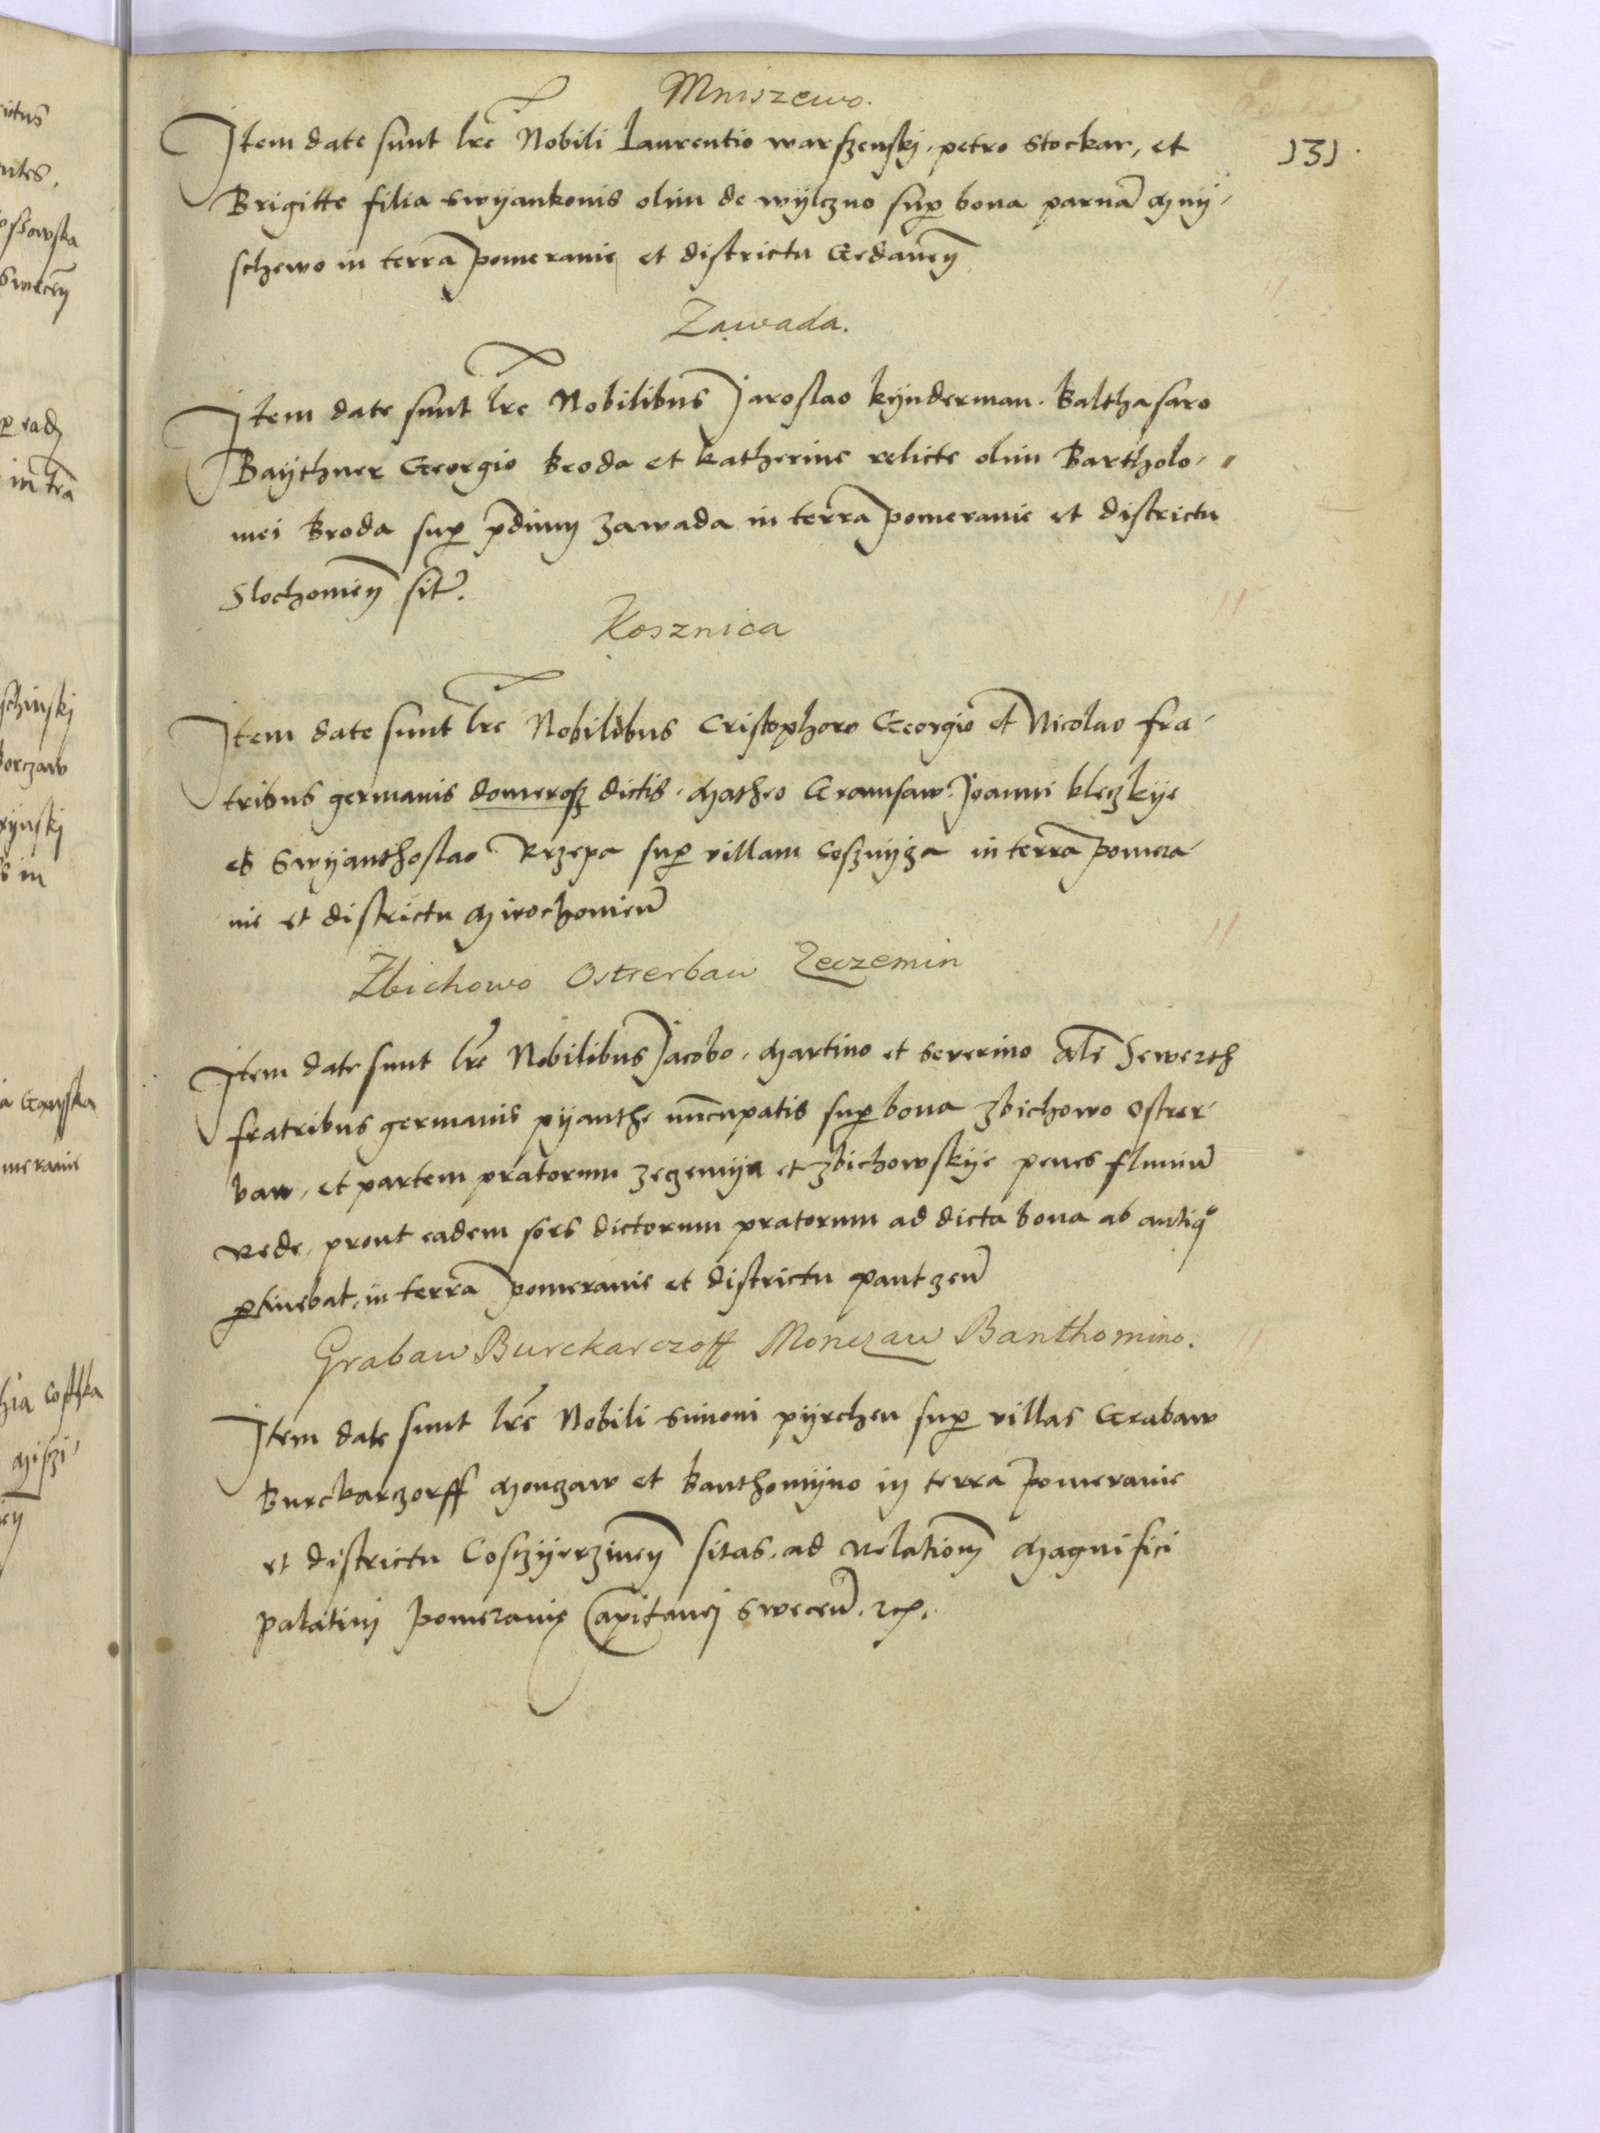 Mniszewo.
131.
Item date sunt lre Nobili Laurentio warszenskj, petro stockar, et
Brigitte filia swÿankonis olim de wÿlczno sup bona parna Mnÿ-
schewo in terra pomeranie et districtu Gedanen
Zawada.
Item date sunt lre Nobilibus Jaroslao kÿnderman. Balthasaro
Baÿthner Georgio Broda et katherine relicte olim Bartholo-
mei Broda sup pdium zawada in terra pomeranie et districtu
Slochomien sit.
Kosznica
Item date sunt lre Nobilibus Cristophoro Georgio et Nicolao fra-
tribus germanis domerosz dictis. Matheo Gramsaw. Joanni kleczkÿe
et swÿanthoslao Rzepa sup villam Cosznÿza in terra pomera-
nie et districtu Mirochomien
Zbichowo Ostrerbaw Zeczemin
Item date sunt lre Nobilibus Jacobo, Martino et severino als Sewerth
fratribus germanis pÿanthe nuncupatis sup bona zbichowo ostrer-
baw, et partem pratorum zeczemÿn et zbichowskÿe penes fluuiu
Rede, prout eadem sors dictorum pratorum ad dicta bona ab antiqo
ptinebat, in terra pomeranie et districtu pautzen
Grabaw Burckarczoff Monczaw Banthomino.
Item date sunt lre Nobili simoni pÿrchen sup villas Grabaw
Burckarczorff Monczaw et Banthomÿno in terra pomeranie
et districtu Cosczÿerzinen sitas. ad Relationem Magnifici
palatini pomeranie Capitanej swecen. rcp.